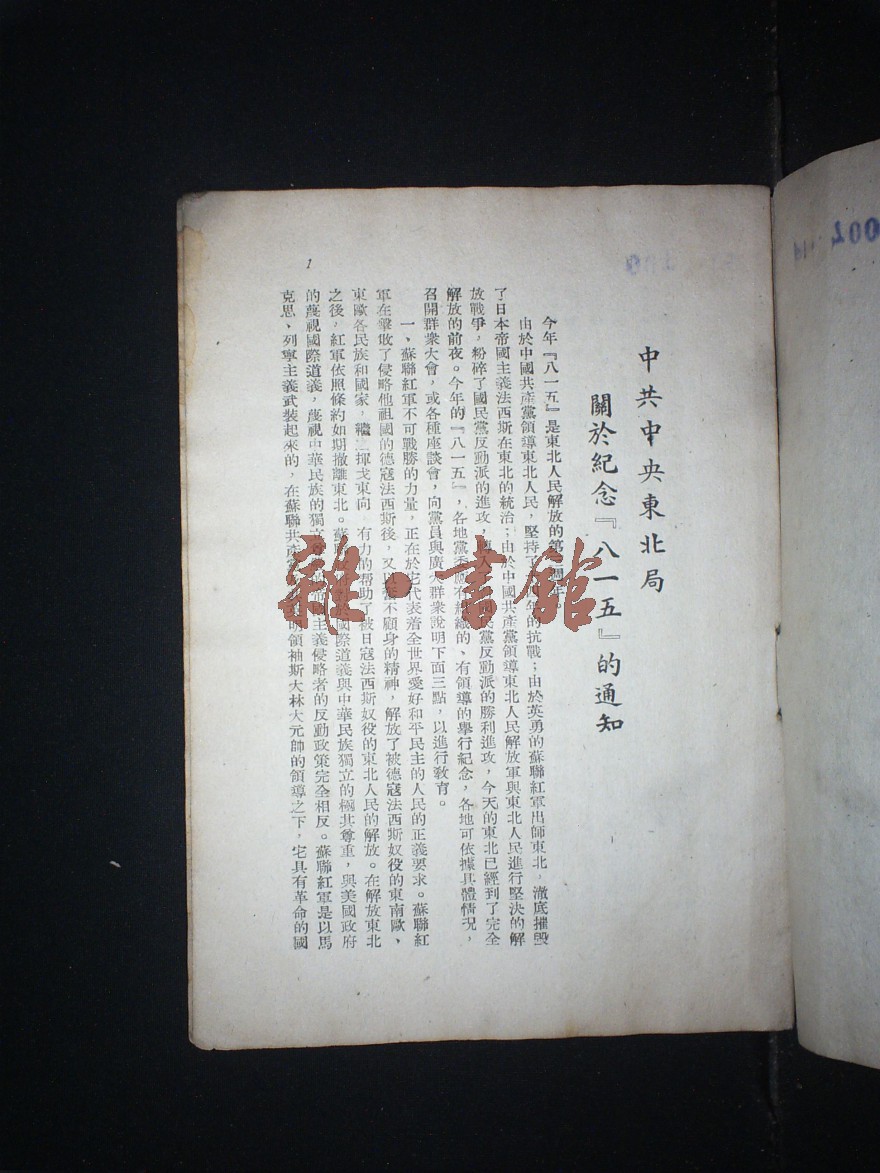 中共中央東北局
關於紀念『八一五』的通知
今年『八一五』是東北人民解放的第
由於中國共產黨領導東北人民，堅持了 年的抗戰；由於英勇的蘇聯紅軍出師東北，澈底摧毀
了日本帝國主義法西斯在東北的統治；由於中國共產黨領導東北人民解放軍與東北人民進行堅決的解
放戰爭，粉碎了國民黨反動派的進攻， 國民黨反動派的勝利進攻，今天的東北已經到了完全
解放的前夜。今年的『八一五』，各地黨委應有組織的、有領導的舉行紀念，各地可依據具體情況，
召開群衆大會，或各種座談會，向黨員與廣大群衆說明下面三點，以進行敎育。
一、蘇聯紅軍不可戰勝的力量，正在於它代表着全世界愛好和平民主的人民的正義要求。蘇聯紅
軍在擊敗了侵略他祖國的德寇法西斯後，又以奮不顧身的精神，解放了被德寇法西斯奴役的東南歐、
東歐各民族和國家，繼之揮戈東向 有力的帮助了被日寇法西斯奴役的東北人民的解放。在解放東北
之後，紅軍依照條約如期撤離東北。蘇 國際道義與中華民族獨立的極其尊重，與美國政府
的蔑視國際道義，蔑視中華民族的獨立 主義侵略者的反動政策完全相反。蘇聯紅軍是以馬
克思、列寧主義武裝起來的，在蘇聯共產黨 明領袖斯大林大元帥的領導之下，它具有革命的國
1
雜·書館
002